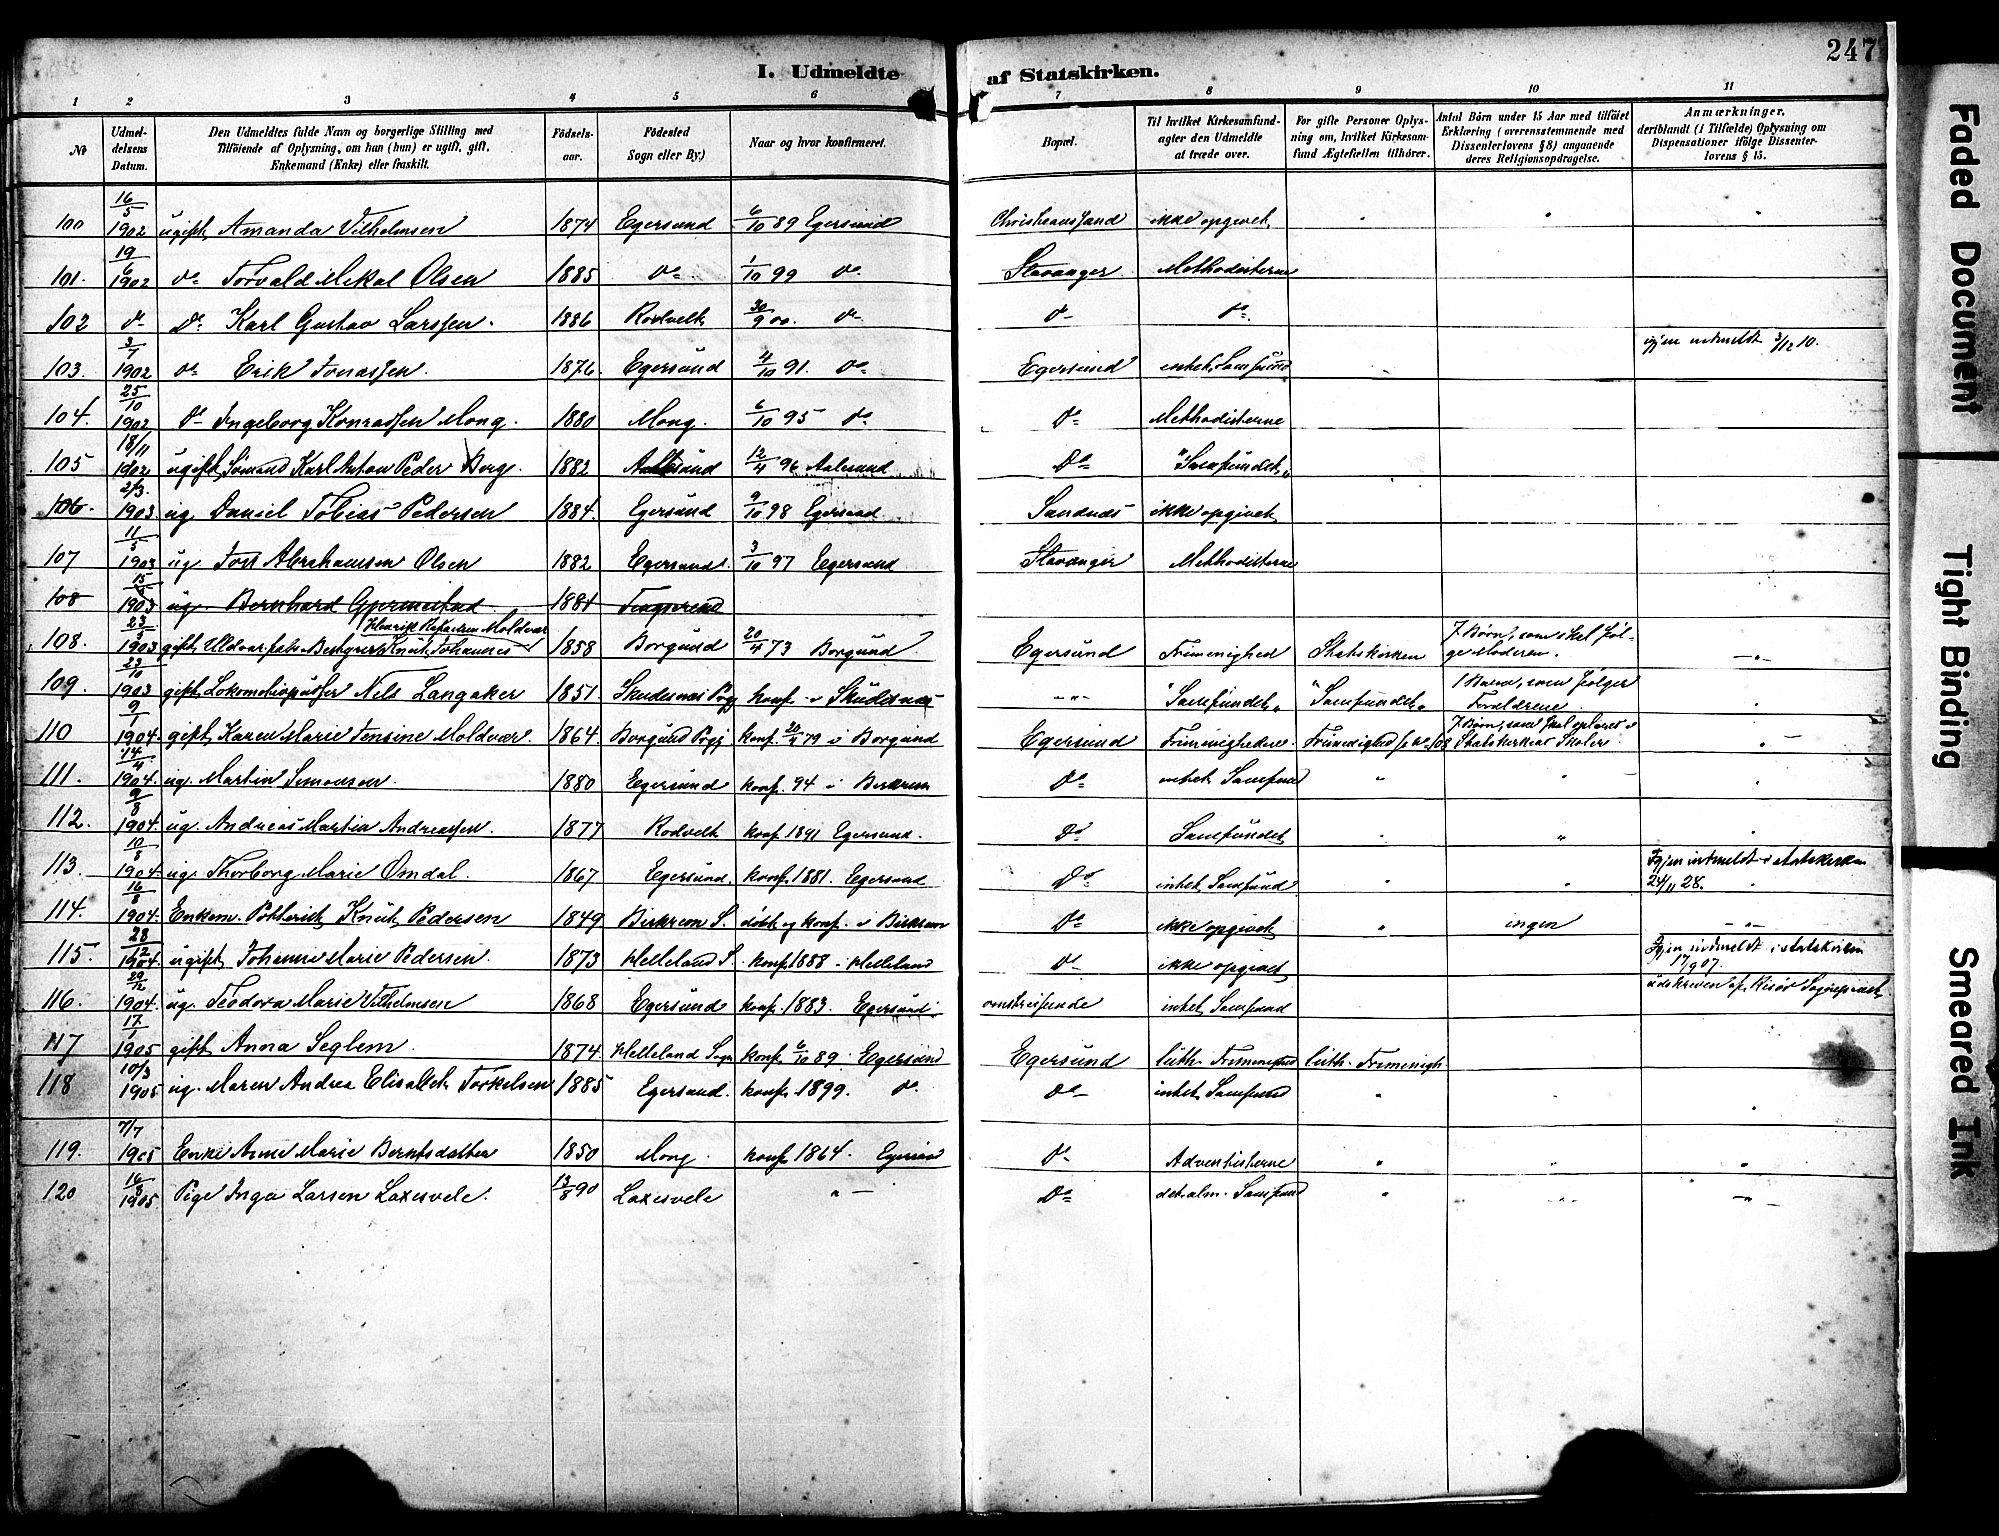 247
I. Udmeldte af Statskirken.
1 2 3 4 5 6 7 8 9 10 11
№ Udmeldelsens Datum. Den Udmeldtes fulde Navn og borgerlige Stilling med Tilföiende af Oplysning, om han (hun) er ugift, gift, Enkemand (Enke) eller fraskilt. Födselsaar. Födested Sogn eller By.) Naar og hvor konfirmeret. Bopæl. Til hvilket Kirkesamfund agter den Udmeldte at træde over. For gifte Personer Oplysning om, hvilket Kirkesamfund Ægtefællen tilhörer. Antal Börn under 15 Aar med tilföiet Erklæring (overensstemmende med Dissenterlovens § 8) angaaende deres Religionsopdragelse. Anmærkninger, deriblandt (i Tilfælde) Oplysning om Dispensationer ifölge Dissenterlovens § 15.
100 16/5 1902 ugift Amanda Vilhelmsen 1874 Egersund 6/10 89 Egersund Christianssand ikke opgivet " " "
101. 19/6 1902 do Torvald Mekal Olsen 1885 do 1/10 99 do Stavanger Methodisterne
102 do Do Karl Gustav Larssen. 1886 Rodvelt 30/9 00. do do do
103. 3/7 1902 do Erik Jonassen. 1876 Egersund 4/10 91. do Egersund intet Samfund igjen indmeldt 3/12 10.
104. 25/10 1902 do Ingeborg Konradsen Mong. 1880 Mong. 6/10 95 do do Methodisterne
105 18/11 1902 ugift Sömand Karl Anton Peder Berge. 1882 Aalesund 12/4 96 Aalesund Do "Samfundet"
106. 2/3. 1903. ug. Daniel Tobias Pedersen 1884. Egersund 9/10 98 Egersund Sandnes ikke opgivet
107 11/5 1903 ug Abrahamsen Olsen 1882 Egersund. 3/10 97 Egersund Stavanger Methodisterne
108 15/ 1903 ug. Bernhard 1881
108. 23/ 1903 gift Henrik Moldvær Knut Johannes 1858 Borgund 20/4 73 Borgund Egersund Frimenighed Statskirken 7 Börn, som skal fölge Moderen. — " —
109. 23/10 1903 gift Lokomotivpudser Nels Langaker 1851 Skudesnes konf. i Skudesnes — " — "Samfundet" "Samfundet" 1 Barn, som fölger Forældrene
110 9/1 1904. gift Karen Marie Jensine Moldvær. 1864. Borgund konf. 20/4 79 i Borgund Egersund Frimenigheden. Frimenighed 108 7 Börn, som skal oplæres i Statskirkens Skoler.
111. 14/4 1904. ug. Martin Simonsen. 1880 Egersund konf. 94 i Birkrem Do intet Samfund "
112. 9/8 1904. ug. Andreas Martin Andreassen. 1877 Rodvelt konf. 1891 Egersund. Do Samfundet " "
113. 10/8 1904. ug. Thorborg Marie Omdal. 1867 Egersund. konf. 1881. Egersund Do intet Samfund " " Igjen indmeldt i statskirken 24/11 28.
114. 16/8 1904. Enkem. Knut Pedersen 1849 Birkrem S. döbt og konf. i Birkrem Do ikke opgivet " ingen — " —
115. 28/12 1904. ugift Johanne Marie Pedersen. 1873 Helleland S. konf. 1888 i Helleland do ikke opgivet Igjen indmeldt i statskirken 17/9 07.
116. 29/12 1904. ug. Teodora Marie Vilhelmsen 1868 Egersund konf. 1883. Egersund. omstreifende intet Samfund udskreven af Risör
117 17/1 1905 gift Anna Seglem. 1874 Helleland Sogn konf. 6/10 89. Egersund Egersund luth. Frimenighed luth. Frimenigh.
118 10/3 1905 ug. Maren Andrea Elisabet Torkelsen 1885 Egersund. konf. 1899. do do intet Samfund "
119. 7/7 1905 Enke Anne Marie Berntsdatter 1850 Mong. konf. 1864. Egersund do Adventisterne " " "
120 16/ 1905 Pige Inga Larsen Laxesvele. 13/8 90 Laxesvele " — Do det alm. Samfund " " — " —
Faded Document
Tight Binding
Smeared Ink